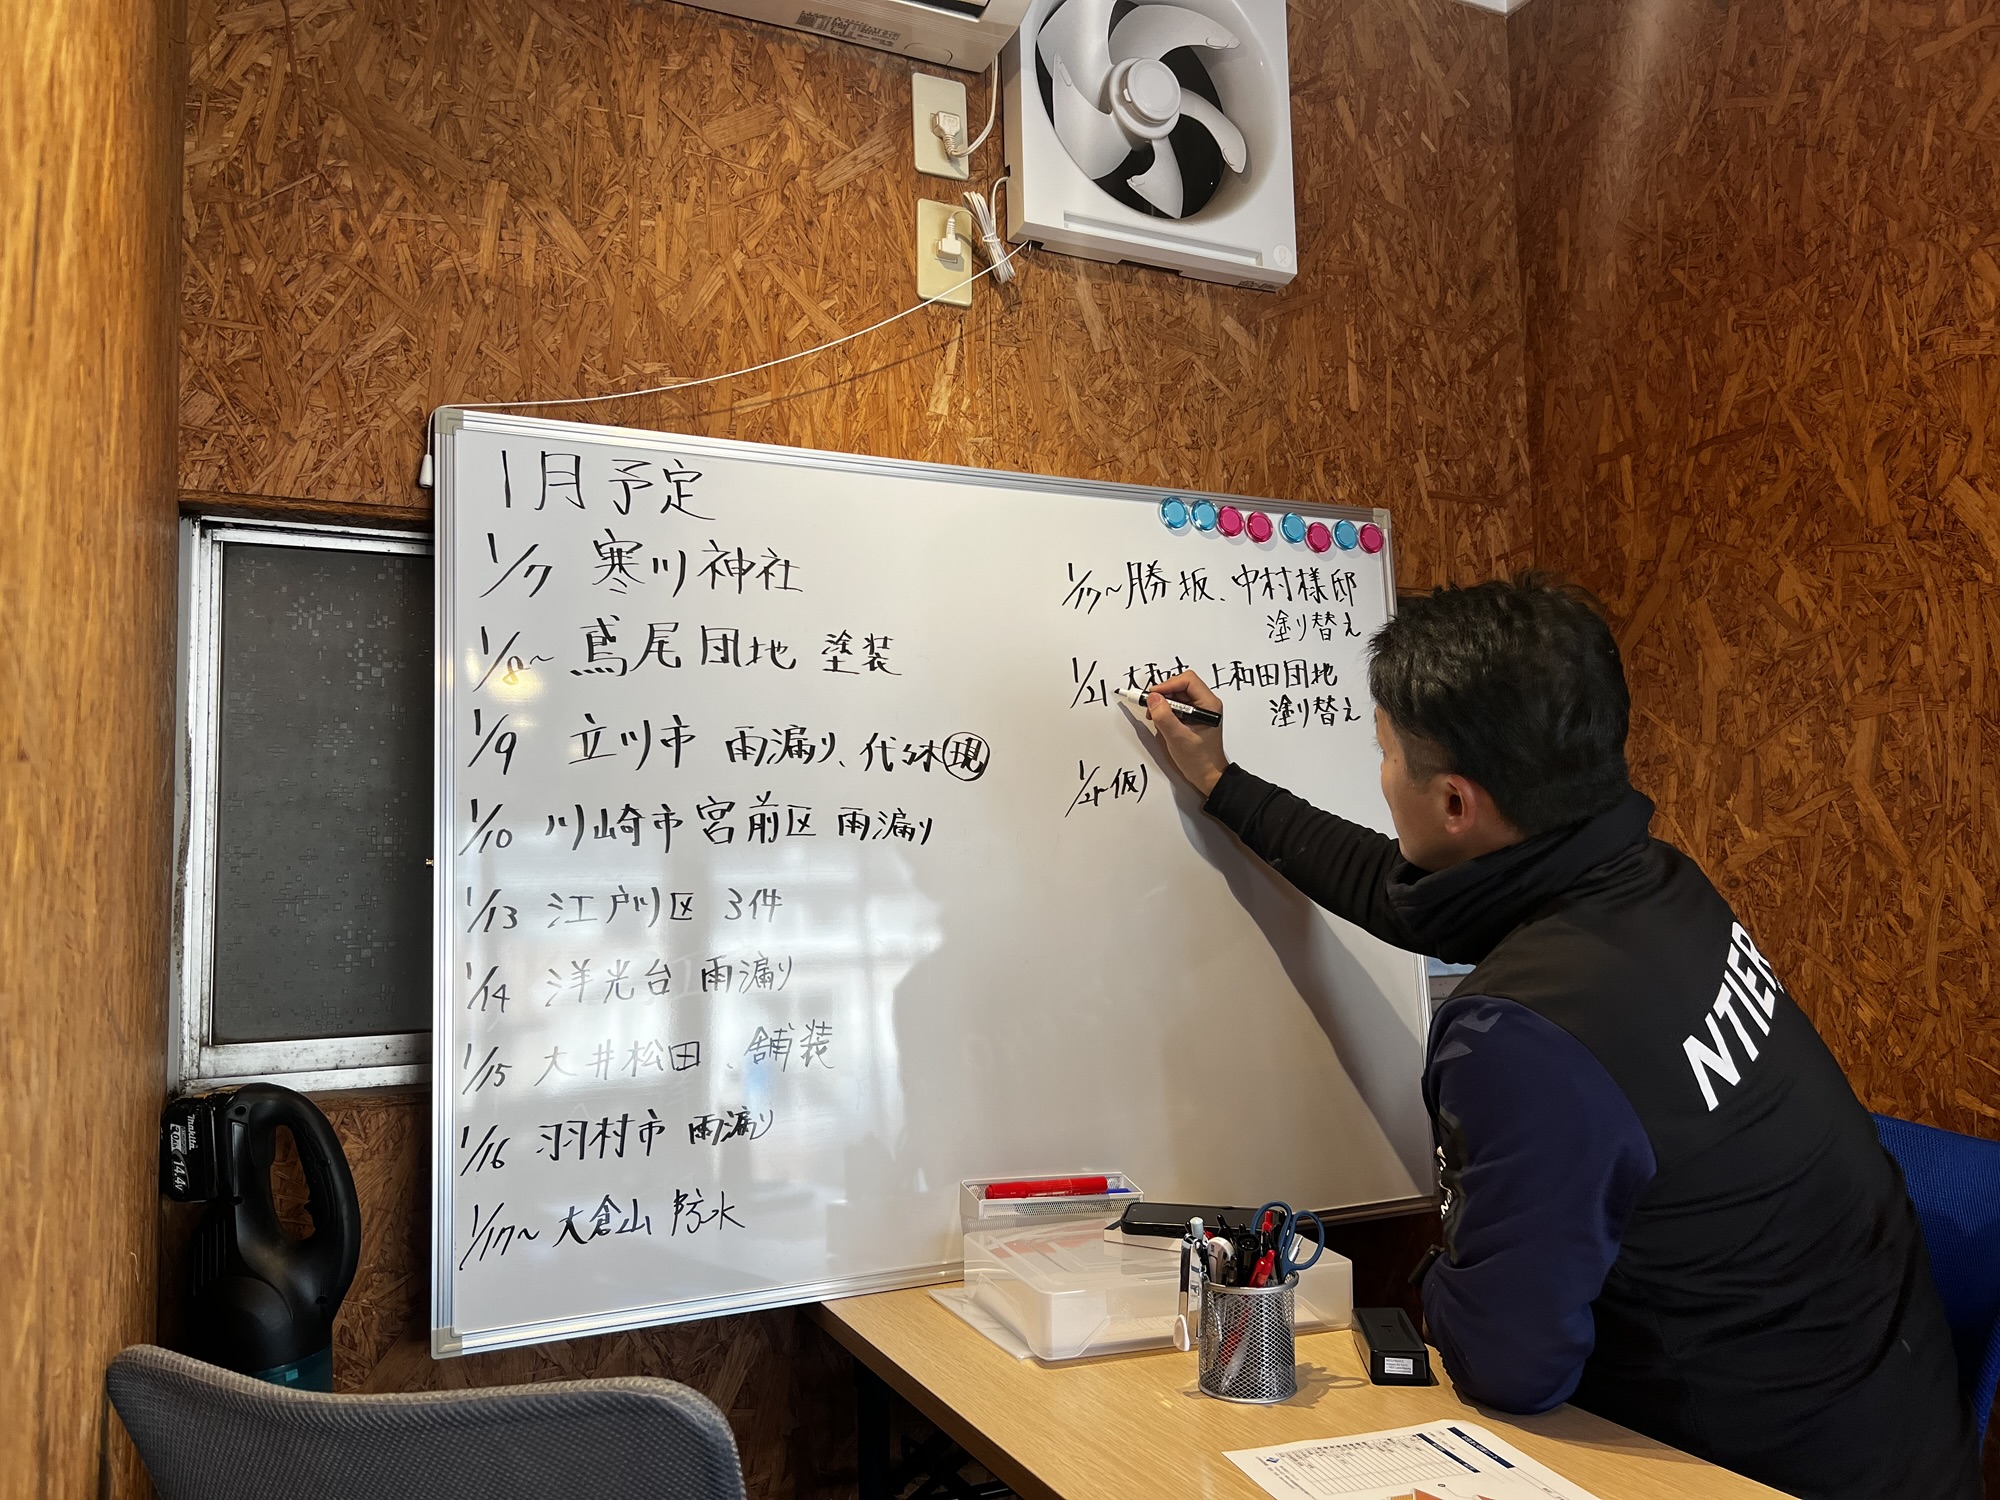 1月予定
1/7 寒川神社
1/8~ 鳶尾団地 塗装
1/9 立川市 雨漏り、代々木 現
1/10 川崎市宮前区 雨漏り
1/13 江戸川区 3件
1/14 洋光台 雨漏り
1/15 大井松田、舗装
1/16 羽村市 雨漏り
1/17~ 大倉山 防水
1/17~ 勝坂、中村様邸
塗り替え
1/21 大和市 上和田団地
塗り替え
仮)
NTIER
makita
14.4v